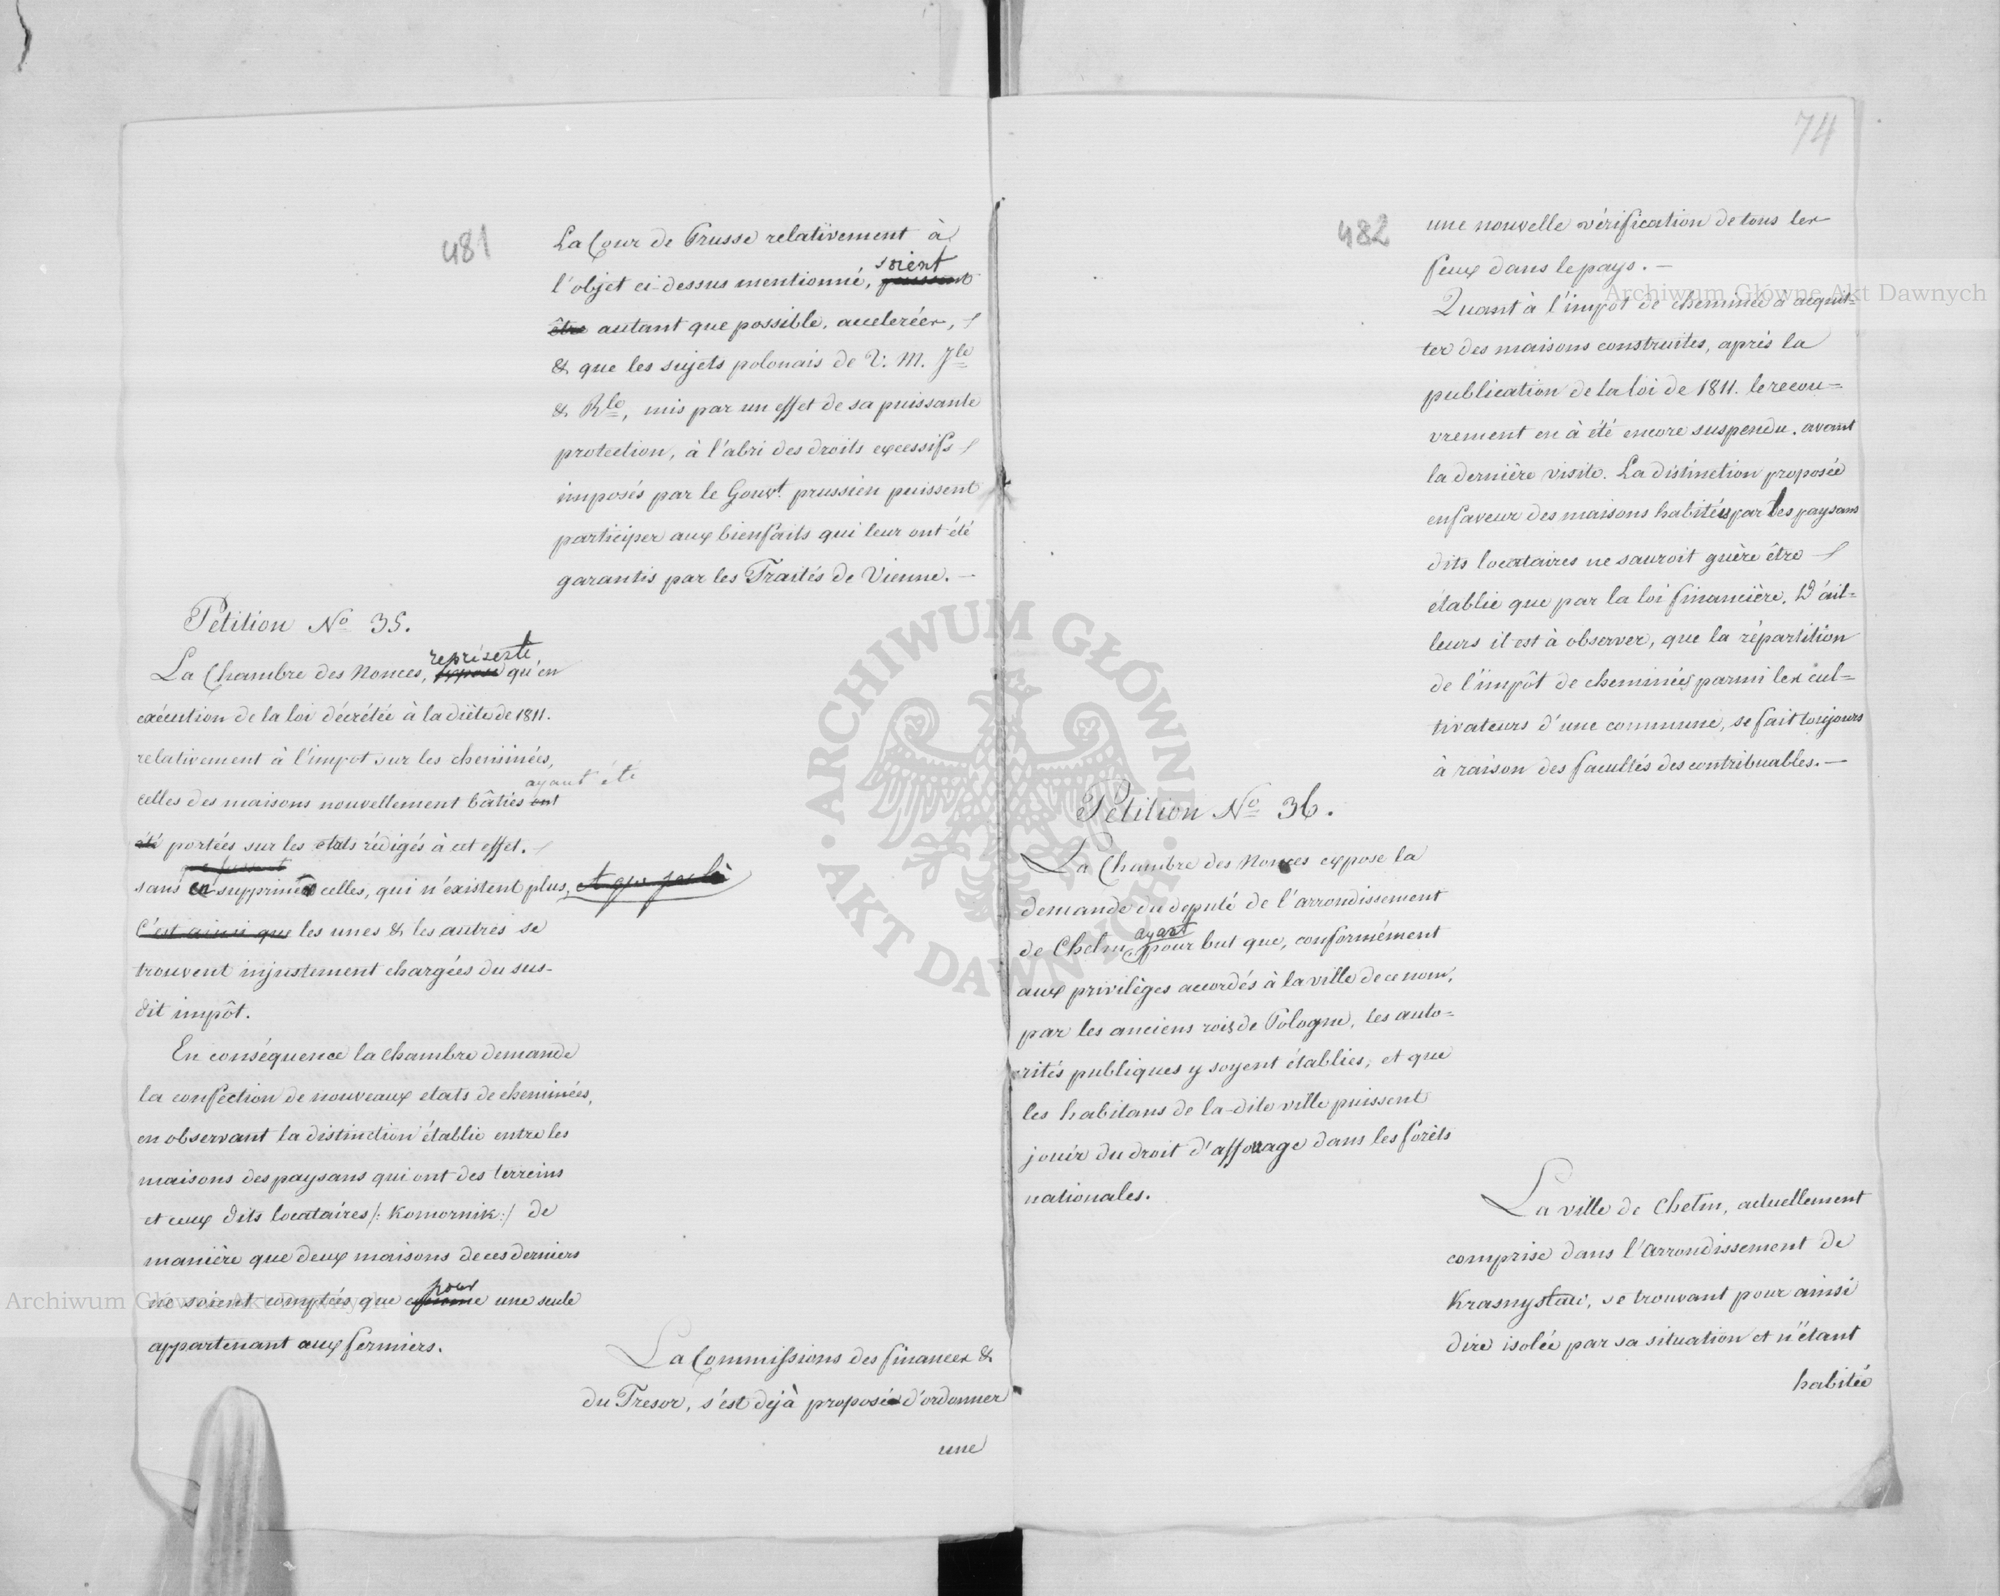 481
La Cour de Prusse relativement à
l'objet ci-dessus mentionné, soient
autant que possible, acceleréer,
& que les sujets polonais de V. M. Jle
& Rle, mis par un effet de sa puissante
protection, à l'abri des droits excessifs
imposés par le Gouvt. prussien puissent
participer aux bienfaits qui leur ont été
garantis par les Traités de Vienne. —
Petition No 35.
La Chambre des Nonces, représente qu'en
exécution de la loi décrétée à la diète de 1811.
relativement à l'impot sur les cheminées,
ayant été
celles des maisons nouvellement bâties ont
été portées sur les etats rédigés à cet effet.
sans en supprimer celles, qui n'existent plus,
C'est ainsi que les unes & les autres se
trouvent injustement chargées du sus-
dit impôt.
En conséquence la Chambre demande
la confection de nouveaux etats de cheminées,
en observant la distinction établie entre les
maisons des paysans qui ont des terreins
et ceux dits locataires /: Komornik :/ de
manière que deux maisons de ces derniers
ne soient comptées que pour une seule
appartenant aux fermiers.
La Commissions des finances &
du Tresor, s'est déjà proposé d'ordonner
une
74
482
une nouvelle vérification de tous les
feux dans le pays. —
Quant à l'impot de cheminée à acquit=
ter des maisons construites, après la
publication de la loi de 1811. le recou=
vrement en à été encore suspendu. avant
la dernière visite. La distinction proposée
en faveur des maisons habitées par les paysans
dits locataires ne sauroit guère être
établie que par la loi financière. D'ail=
leurs il est à observer, que la répartition
de l'impôt de cheminées parmi les cul=
tivateurs d'une commune, se fait toujours
à raison des facultés des contribuables. —
Pétition No 36.
La Chambre des Nonces expose la
demande du deputé de l'arrondissement
de Chelm ayant pour but que, conformément
aux privilèges accordés à la ville de ce nom,
par les anciens rois de Pologne, les auto=
rités publiques y soyent établies, et que
les habitans de la dite ville puissent
jouir du droit d'affouage dans les forêts
nationales.
La ville de Chelm, actuellement
comprise dans l'arrondissement de
Krasnystaw, se trouvant pour ainsi
dire isolée par sa situation et n'étant
habitée
Archiwum Główne Akt Dawnych
Archiwum Główne Akt Dawnych
ARCHIWUM GŁÓWNE · AKT DAWNYCH ·